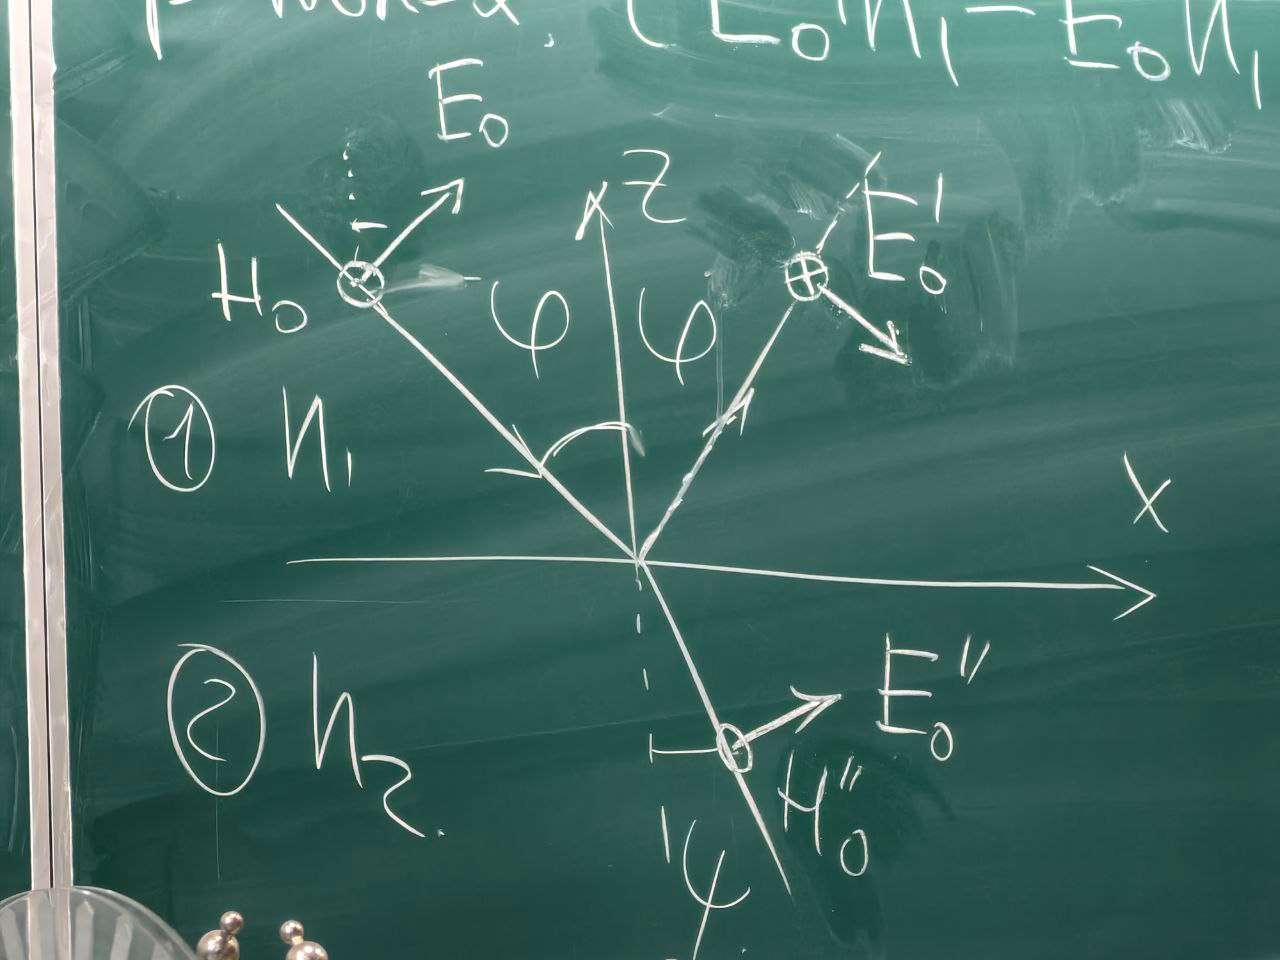 (E₀'n₁ - E₀n₁
E₀
Z
E₀'
H₀
φ φ
① n₁
X
② n₂.
E₀''
H₀''
ψ